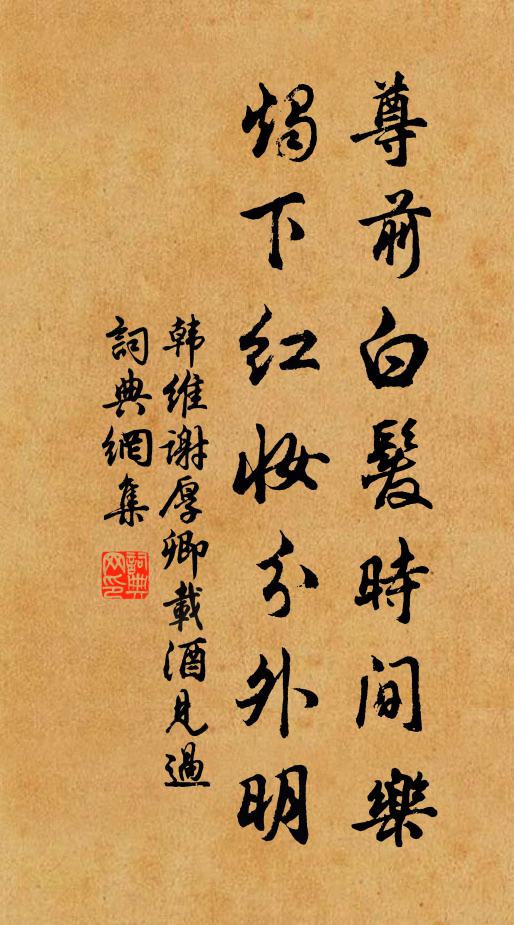 尊前白髮時間樂
燭下红妆分外明
韩維谢厚卿載酒見過
詞典網集
詞典网印